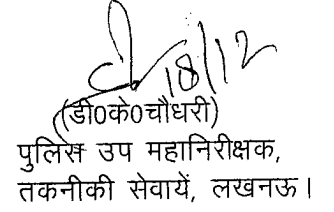 18/12
(डी0के0चौधरी)
पुलिस उप महानिरीक्षक,
तकनीकी सेवायें, लखनऊ।